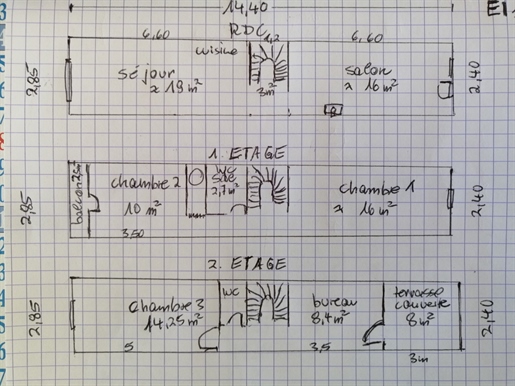 14,40
RDC
6,60 1,2 6,60
cuisine
séjour
≈ 19 m²
3m²
salon
≈ 16 m²
2,85
2,40
1. ETAGE
balcon 2m²
chambre 2
10 m²
3,50
WC
SdB
2,7 m²
chambre 1
≈ 16 m²
2,85
2,40
2. ETAGE
chambre 3
14,25 m²
WC
bureau
8,4 m²
terrasse
couverte
8 m²
2,85
2,40
5
3,5
3m